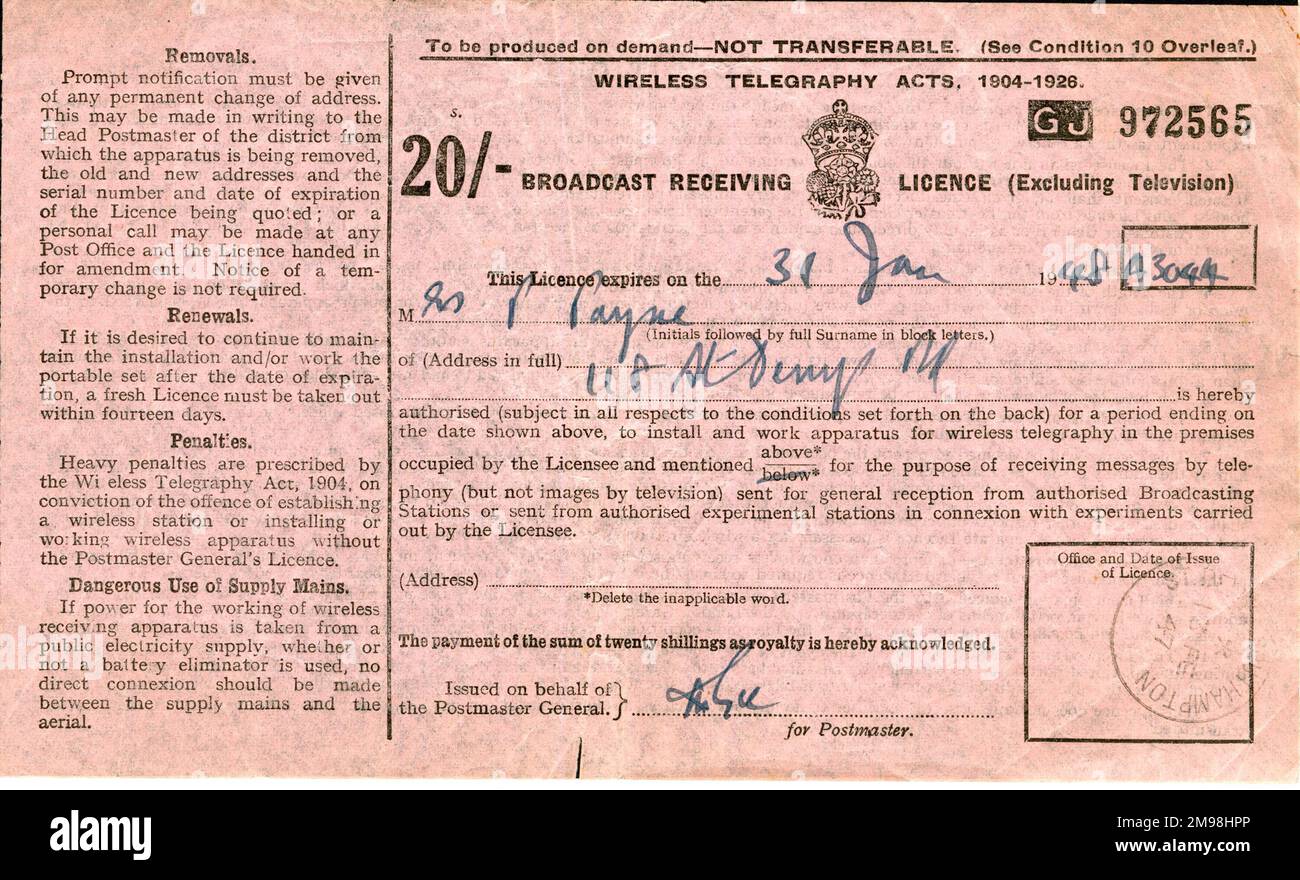 Removals.
Prompt notification must be given
of any permanent change of address.
This may be made in writing to the
Head Postmaster of the district from
which the apparatus is being removed,
the old and new addresses and the
serial number and date of expiration
of the Licence being quoted; or a
personal call may be made at any
Post Office and the Licence handed in
for amendment. Notice of a tem-
porary change is not required.
Renewals.
If it is desired to continue to main-
tain the installation and/or work the
portable set after the date of expira-
tion, a fresh Licence must be taken out
within fourteen days.
Penalties.
Heavy penalties are prescribed by
the Wi eless Telegraphy Act, 1904, on
conviction of the offence of establishing
a wireless station or installing or
working wireless apparatus without
the Postmaster General's Licence.
Dangerous Use of Supply Mains.
If power for the working of wireless
receiving apparatus is taken from a
public electricity supply, whether or
not a battery eliminator is used, no
direct connexion should be made
between the supply mains and the
aerial.
To be produced on demand—NOT TRANSFERABLE. (See Condition 10 Overleaf.)
WIRELESS TELEGRAPHY ACTS, 1904-1926.
s.
20/-
GJ 972565
BROADCAST RECEIVING LICENCE (Excluding Television)
This Licence expires on the 31 Jan 1948 A3044
Mrs P Payne
(Initials followed by full Surname in block letters.)
of (Address in full) 118 St Denys Rd
is hereby
authorised (subject in all respects to the conditions set forth on the back) for a period ending on
the date shown above, to install and work apparatus for wireless telegraphy in the premises
occupied by the Licensee and mentioned above* below* for the purpose of receiving messages by tele-
phony (but not images by television) sent for general reception from authorised Broadcasting
Stations or sent from authorised experimental stations in connexion with experiments carried
out by the Licensee.
(Address)
*Delete the inapplicable word.
The payment of the sum of twenty shillings as royalty is hereby acknowledged.
Issued on behalf of
the Postmaster General.
for Postmaster.
Office and Date of Issue
of Licence.
HAMPTON
47
alamy
Image ID: 2M98HPP
www.alamy.com